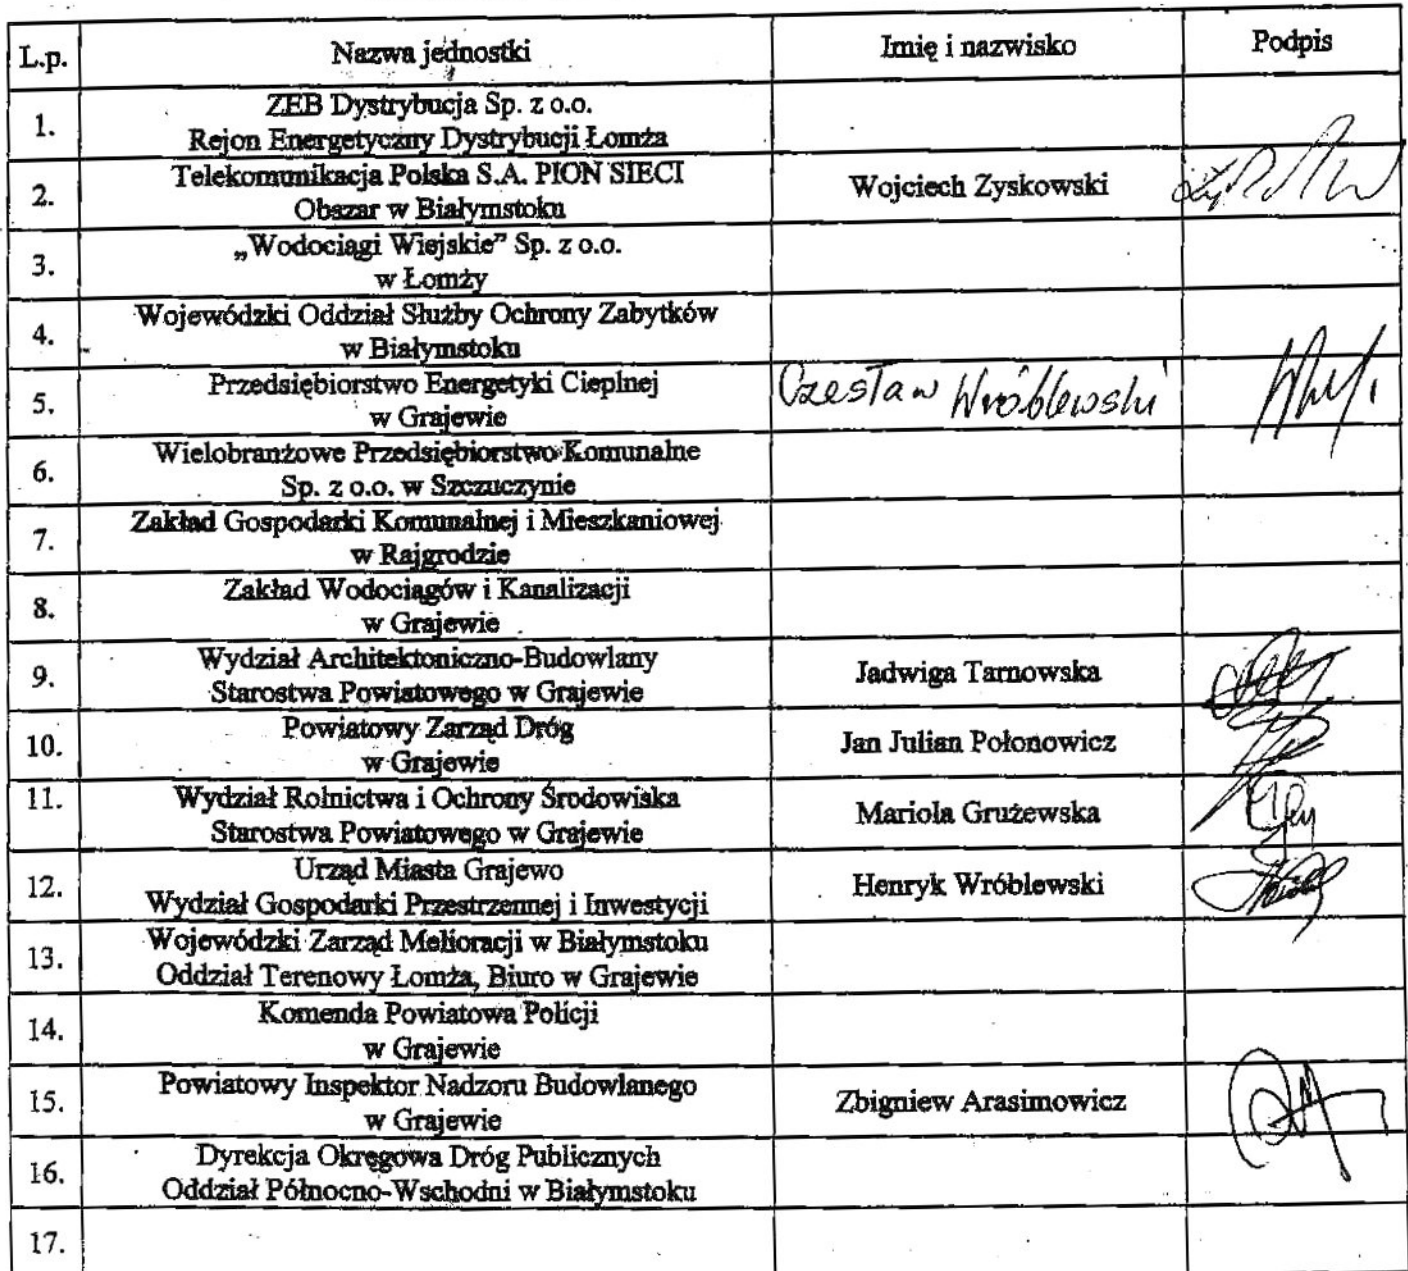 L.p. Nazwa jednostki Imię i nazwisko Podpis
1. ZEB Dystrybucja Sp. z o.o.
Rejon Energetyczny Dystrybucji Łomża
2. Telekomunikacja Polska S.A. PION SIECI
Obszar w Białymstoku
Wojciech Zyskowski
3. „Wodociągi Wiejskie” Sp. z o.o.
w Łomży
4. Wojewódzki Oddział Służby Ochrony Zabytków
w Białymstoku
5. Przedsiębiorstwo Energetyki Cieplnej
w Grajewie
Czesław Wróblewski
6. Wielobranżowe Przedsiębiorstwo Komunalne
Sp. z o.o. w Szczuczynie
7. Zakład Gospodarki Komunalnej i Mieszkaniowej
w Rajgrodzie
8. Zakład Wodociągów i Kanalizacji
w Grajewie
9. Wydział Architektoniczno-Budowlany
Starostwa Powiatowego w Grajewie
Jadwiga Tarnowska
10. Powiatowy Zarząd Dróg
w Grajewie
Jan Julian Połonowicz
11. Wydział Rolnictwa i Ochrony Środowiska
Starostwa Powiatowego w Grajewie
Mariola Grużewska
12. Urząd Miasta Grajewo
Wydział Gospodarki Przestrzennej i Inwestycji
Henryk Wróblewski
13. Wojewódzki Zarząd Melioracji w Białymstoku
Oddział Terenowy Łomża, Biuro w Grajewie
14. Komenda Powiatowa Policji
w Grajewie
15. Powiatowy Inspektor Nadzoru Budowlanego
w Grajewie
Zbigniew Arasimowicz
16. Dyrekcja Okręgowa Dróg Publicznych
Oddział Północno-Wschodni w Białymstoku
17.